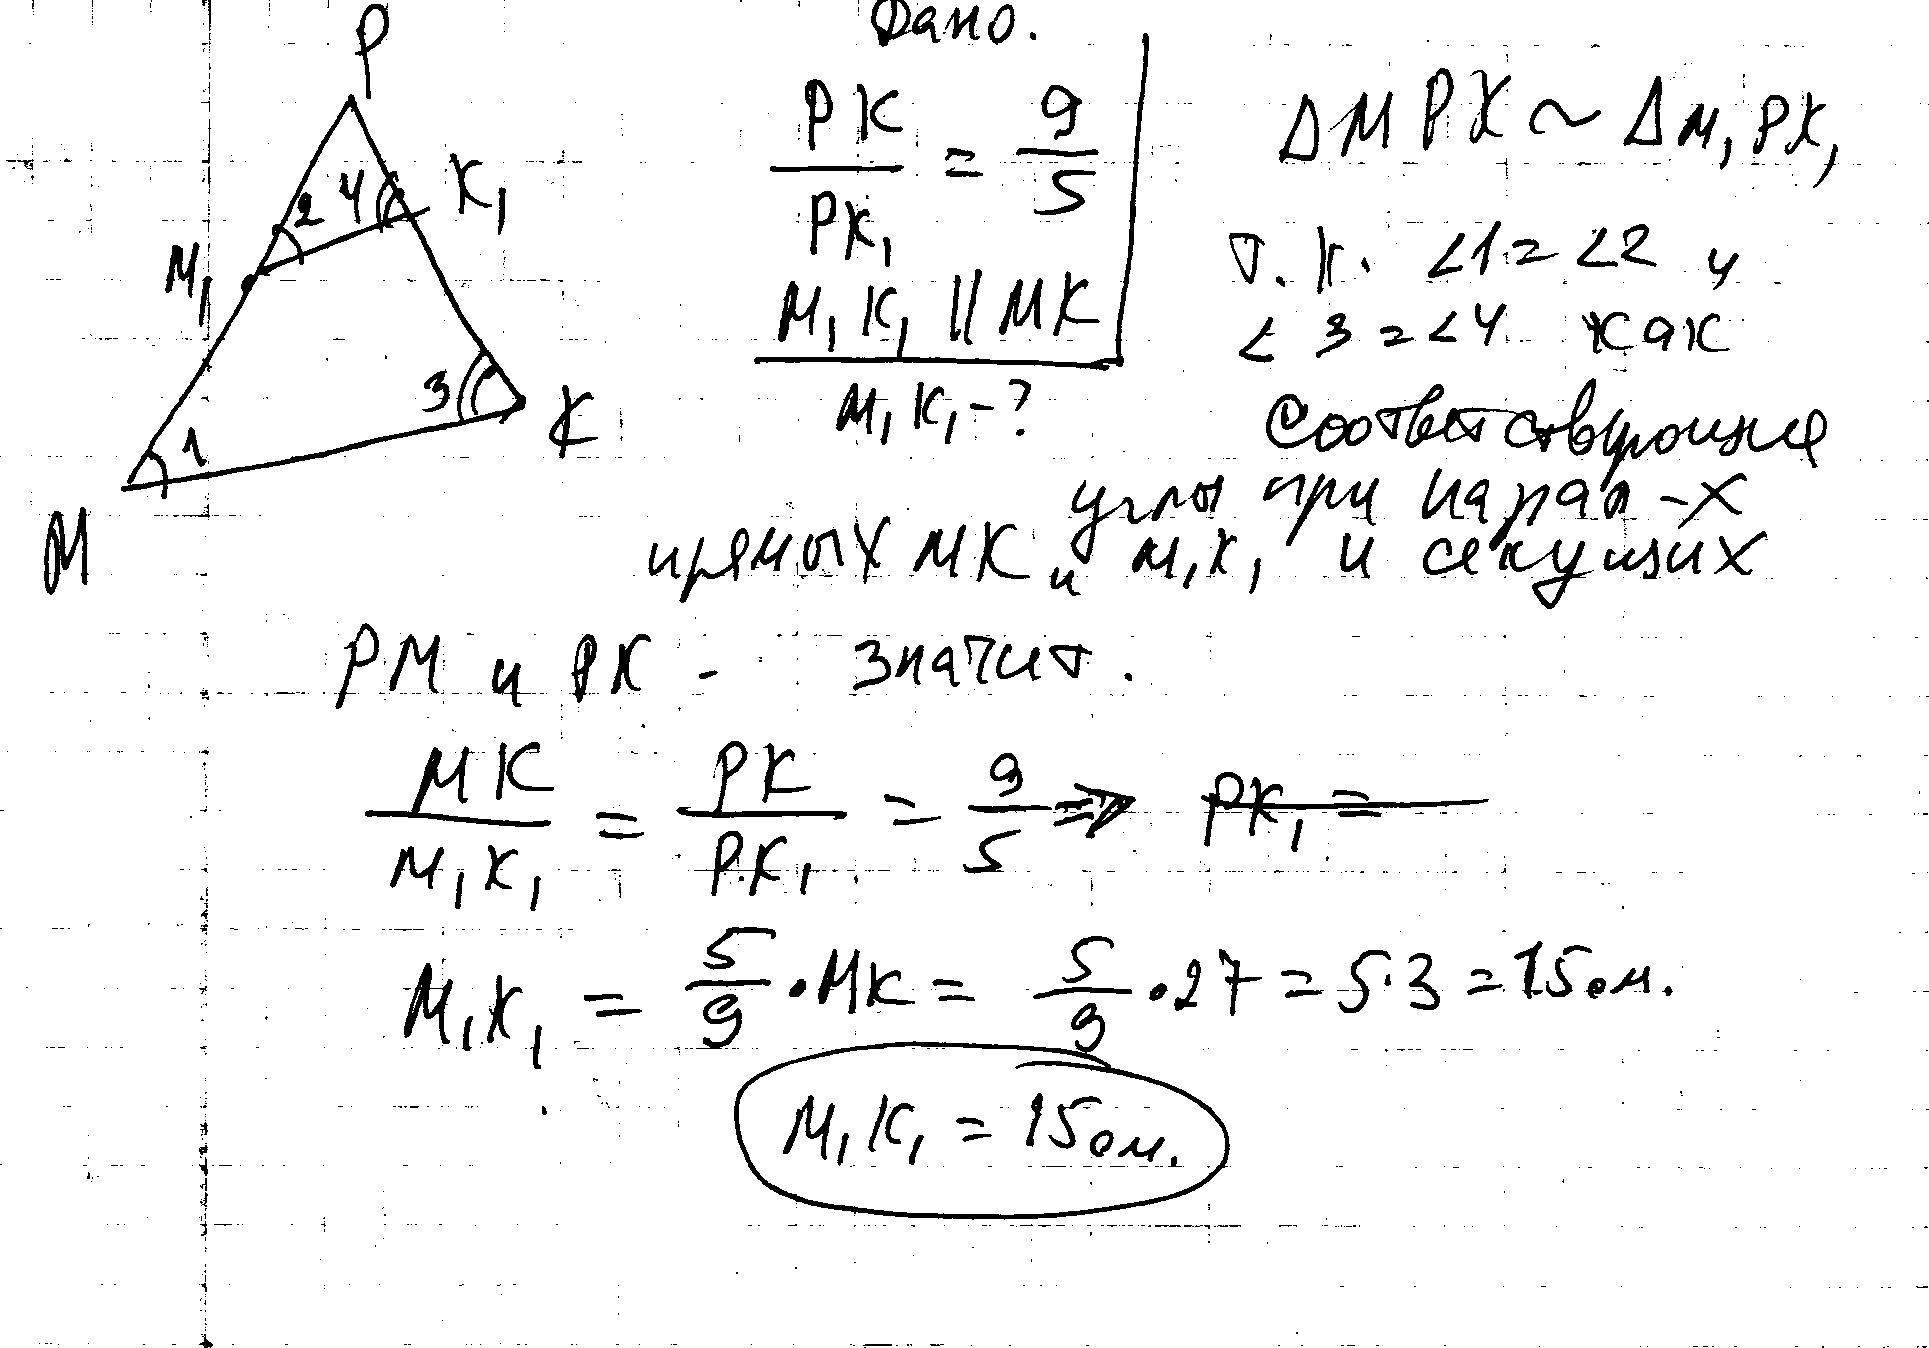 P
K₁
M₁
2 4
1
3
K
M
Дано.
PK/PK₁ = 9/5
M₁K₁ || MK
M₁K₁ - ?
ΔMPK ~ ΔM₁PK₁
т.к. ∠1 = ∠2 и
∠3 = ∠4 как
соответствующие
углы при парал-х
прямых MK и M₁K₁ и секущих
PM и PK - значит.
MK/M₁K₁ = PK/PK₁ = 9/5 => PK₁ =
M₁K₁ = 5/9 · MK = 5/9 · 27 = 5·3 = 15 см.
M₁K₁ = 15 см.